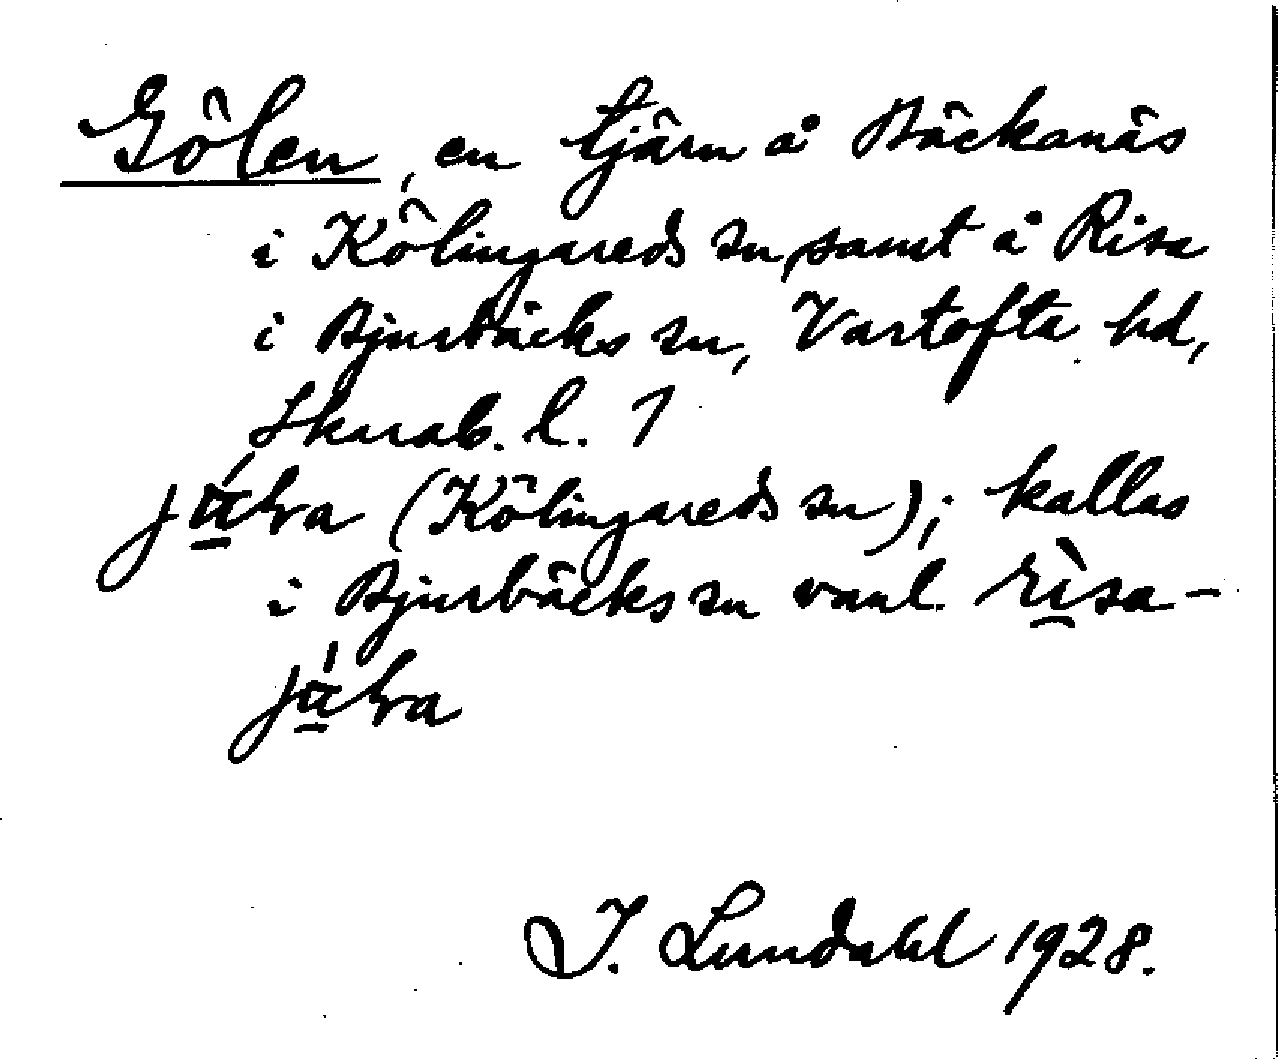 Gölen, en tjärn å Bäckanäs
i Kölingareds sn, samt å Risa
i Bjurbäcks sn, Vartofta hd,
Skarab. l. 1
(Kölingareds sn); kallas
i Bjurbäcks sn vanl. rìsa-
I. Lundahl 1928.